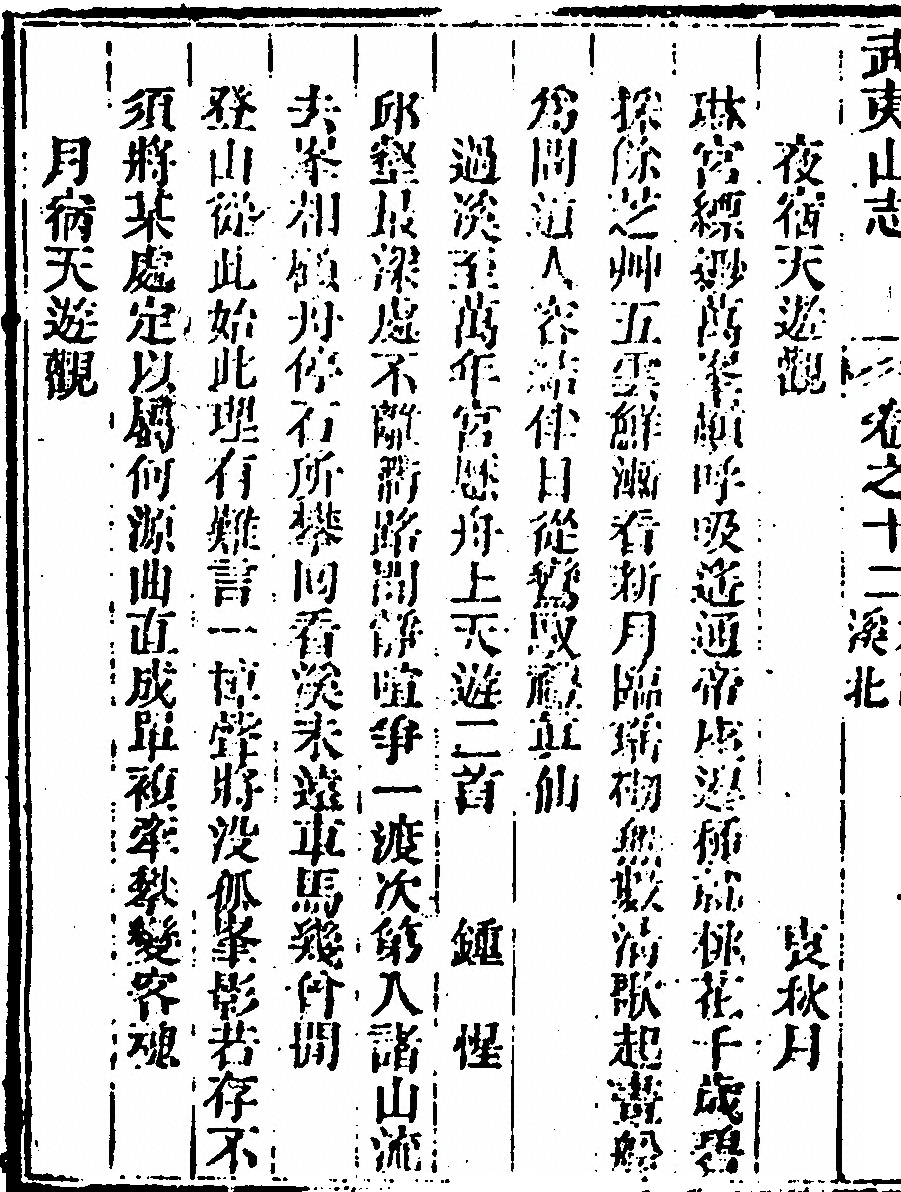 武夷山志 卷之十二 溪北
夜宿天遊觀 袁秋月
琳宮縹緲萬峯巔呼吸遥通帝座邊種就桃花千歲碧
採餘芝艸五雲鮮漸看新月臨瑤砌無數清歌起畫船
爲問道人容結伴日從鸞馭禮真仙
過溪至萬年宮懸舟上天遊二首 鍾惺
邱壑最深處不離衝路間靜喧爭一渡次第入諸山流
去峯相顧舟停石所攀回看溪未遠車馬幾何開
登山從此始此理有難言一棹聲將没孤峯影若存不
須將某處定以屬何源曲直成單複牽攀變客魂
月宿天遊觀